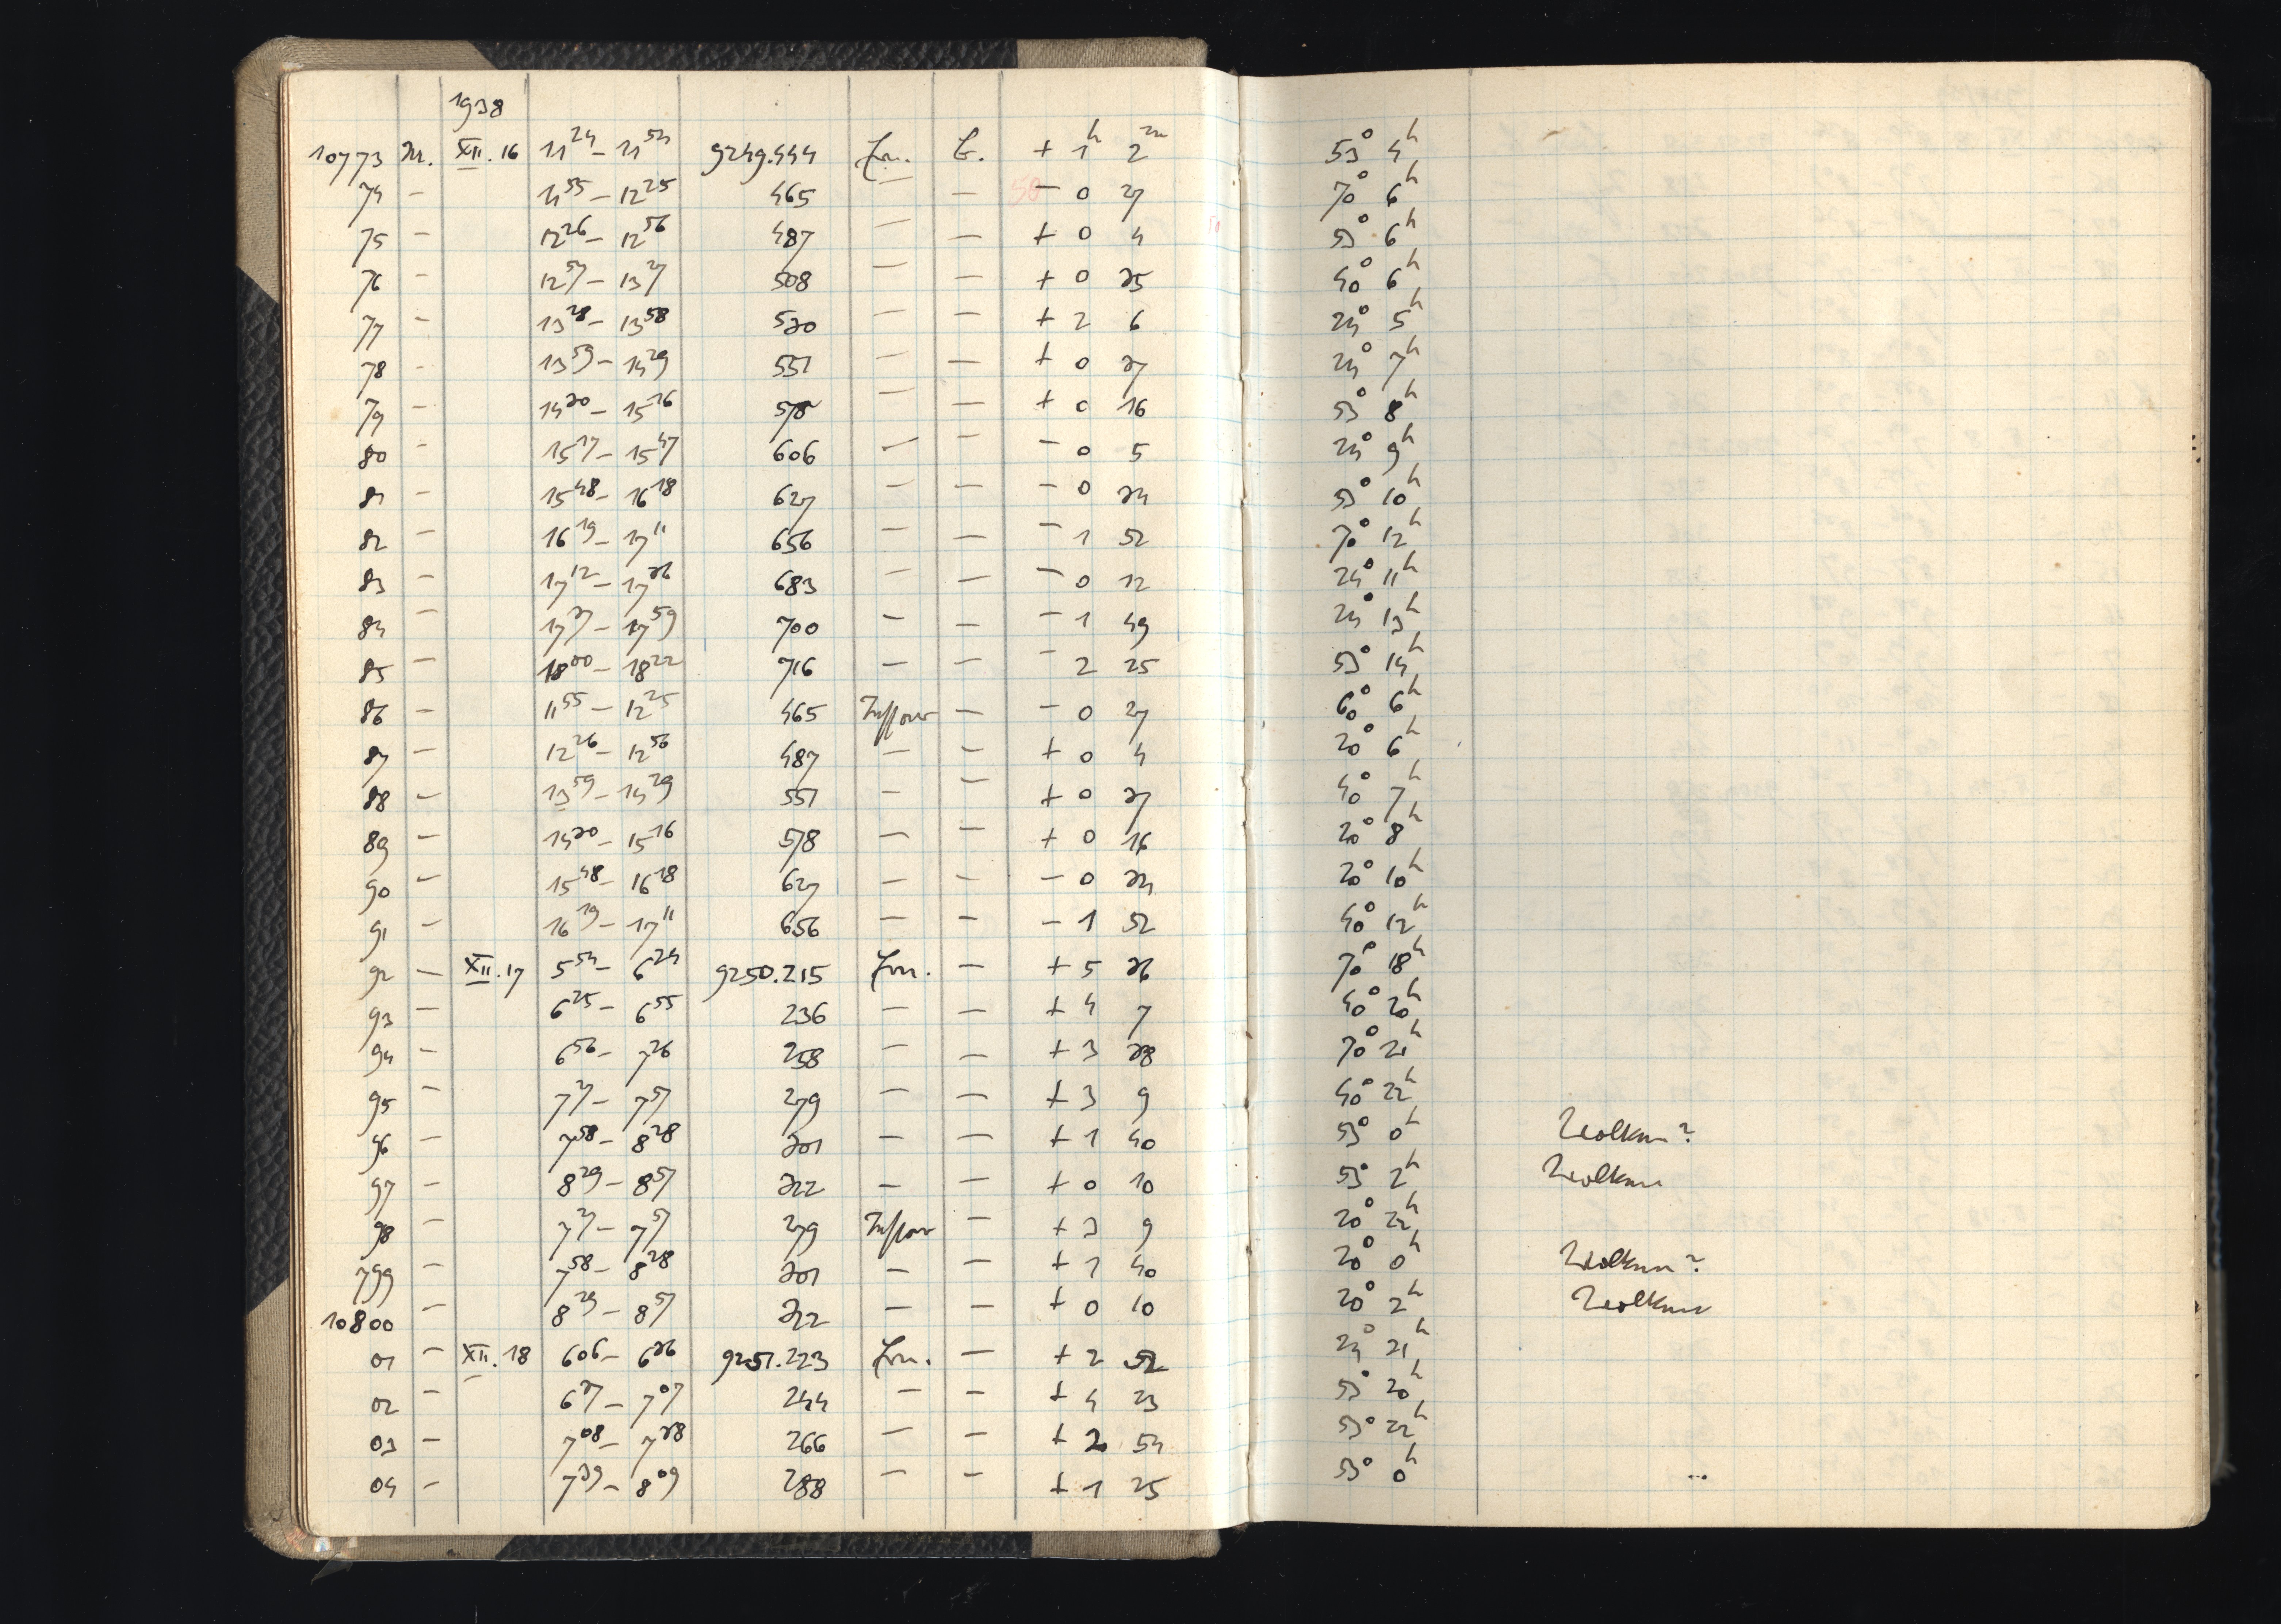 1938
10773 XII. 16 11 24 – 11 54 9249.444 + 1 h 2 m 53° 4 h
74 – 11 55 – 12 25 465 – – – 0 27 70° 6 h
75 – 12 26 – 12 56 487 – – + 0 4 53° 6 h
76 – 12 57 – 13 27 508 – – + 0 35 40° 6 h
77 – 13 28 – 13 58 530 – – + 2 6 24° 5 h
78 – 13 59 – 14 29 551 – – + 0 37 24° 7 h
79 – 14 30 – 15 16 578 – – + 0 16 53° 8 h
80 – 15 17 – 15 47 606 – – – 0 5 24° 9 h
81 – 15 48 – 16 18 627 – – – 0 34 53° 10 h
82 – 16 19 – 17 11 656 – – – 1 52 70° 12 h
83 – 17 12 – 17 36 683 – – – 0 12 24° 11 h
84 – 17 37 – 17 59 700 – – – 1 49 24° 13 h
85 – 18 00 – 18 22 716 – – – 2 25 53° 14 h
86 – 11 55 – 12 25 465 – – 0 27 60° 6 h
87 – 12 26 – 12 56 487 – – + 0 4 20° 6 h
88 – 13 59 – 14 29 551 – – + 0 37 40° 7 h
89 – 14 30 – 15 16 578 – – + 0 16 20° 8 h
90 – 15 48 – 16 18 627 – – – 0 34 20° 10 h
91 – 16 19 – 17 11 656 – – – 1 52 40° 12 h
92 – XII. 17 5 54 – 6 24 9250.215 – + 5 36 70° 18 h
93 – 6 25 – 6 55 236 – – + 4 7 40° 20 h
94 – 6 56 – 7 26 258 – – + 3 38 70° 21 h
95 – 7 27 – 7 57 279 – – + 3 9 40° 22 h
96 – 7 58 – 8 28 301 – – + 1 40 53° 0 h Wolken?
97 – 8 29 – 8 57 322 – – + 0 10 53° 2 h Wolken
98 – 7 27 – 7 57 279 – + 3 9 20° 22 h
799 – 7 58 – 8 28 301 – – + 1 40 20° 0 h Wolken?
10800 – 8 29 – 8 57 322 – – + 0 10 20° 2 h Wolken
01 – XII. 18 6 06 – 6 36 9251.223 – + 2 52 24° 21 h
02 – 6 37 – 7 07 244 – – + 4 23 53° 20 h
03 – 7 08 – 7 38 266 – – + 2 54 53° 22 h
04 – 7 39 – 8 09 288 – – + 1 25 53° 0 h